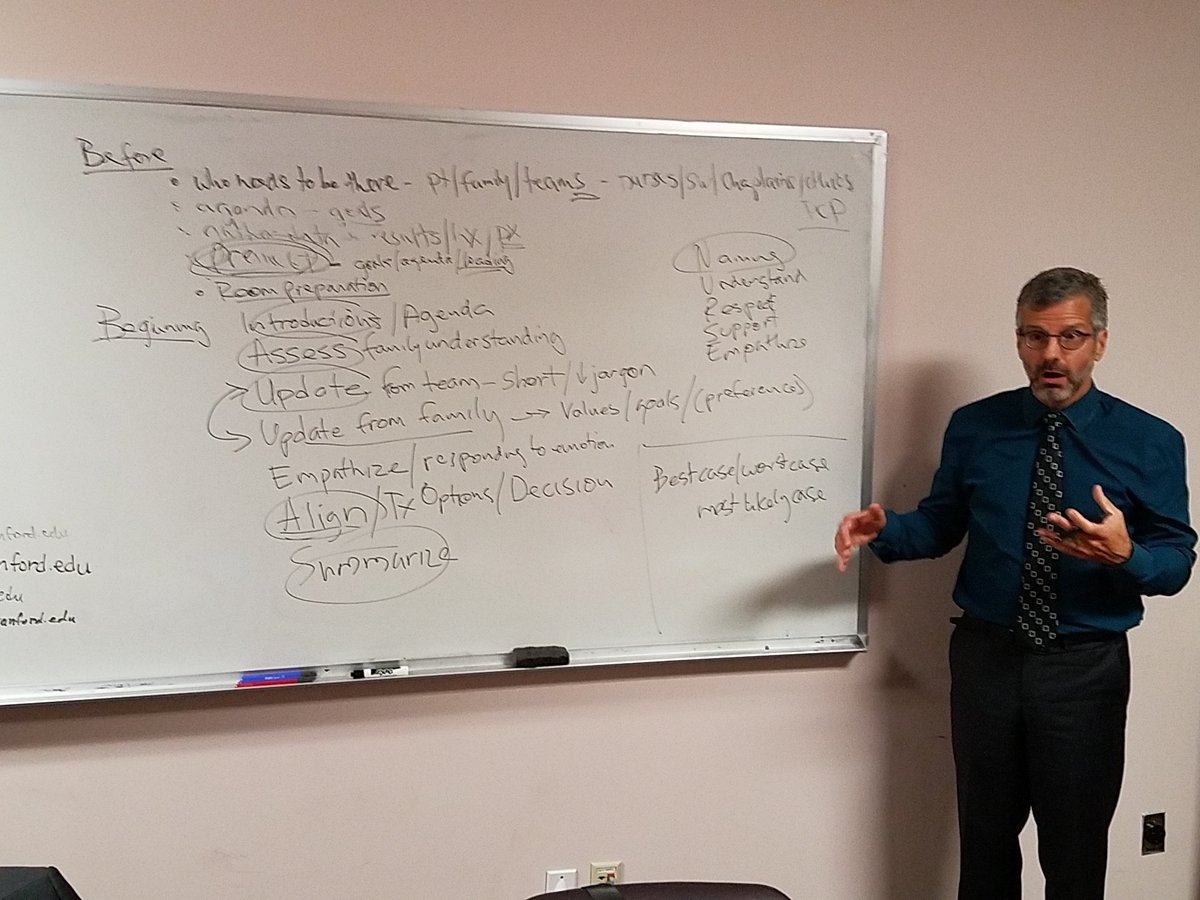 Before
• who needs to be there - pt/family/teams - nurses/SW/chaplains/ethics
PCP
• agenda - goals
• gather data - results/hx/px
- goals/agenda/leading
• Room preparation
Beginning Introductions/Agenda
Assess family understanding
Update from team - short/↓jargon
Update from family → Values/goals/(preferences)
Empathize/responding to emotion
Align/Tx Options/Decision
Summarize
Naming
Understand
Respect
Support
Empathize
Best case/worst case
most likely case
nford.edu
nford.edu
edu
anford.edu